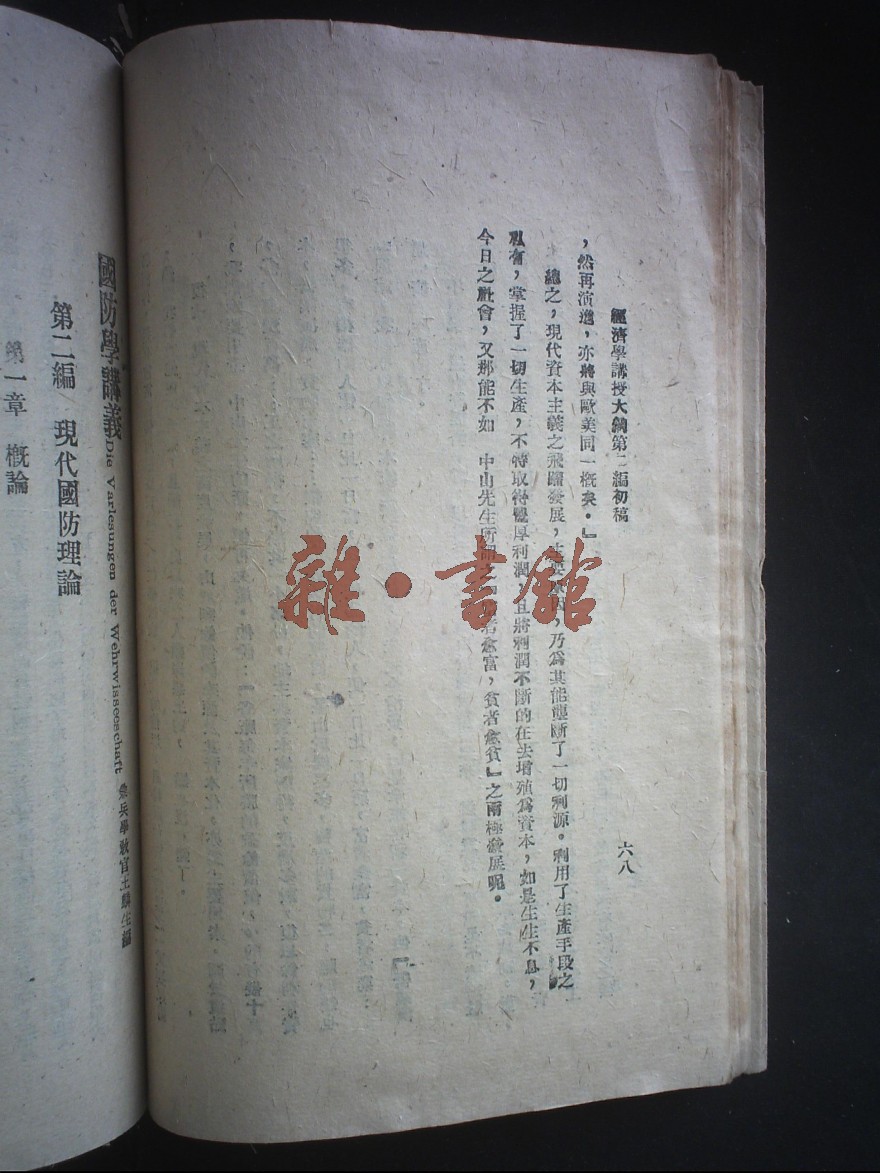 經濟學講授大綱第二編初稿
六八
，然再演進，亦將與歐美同一概矣。』
總之，現代資本主義之飛躍發展，乃爲其能壟斷了一切利源。利用了生產手段之
私有，掌握了一切生產，不特取得豐厚利潤，且將利潤不斷的在去增殖爲資本，如是生生不息，
今日之社會，又那能不如 中山先生所 者愈富，貧者愈貧』之兩極發展呢。
國防學講義 Die Varlesungen der Wehrwisseoschaft
第二編 現代國防理論
第一章 概論
雜·書館